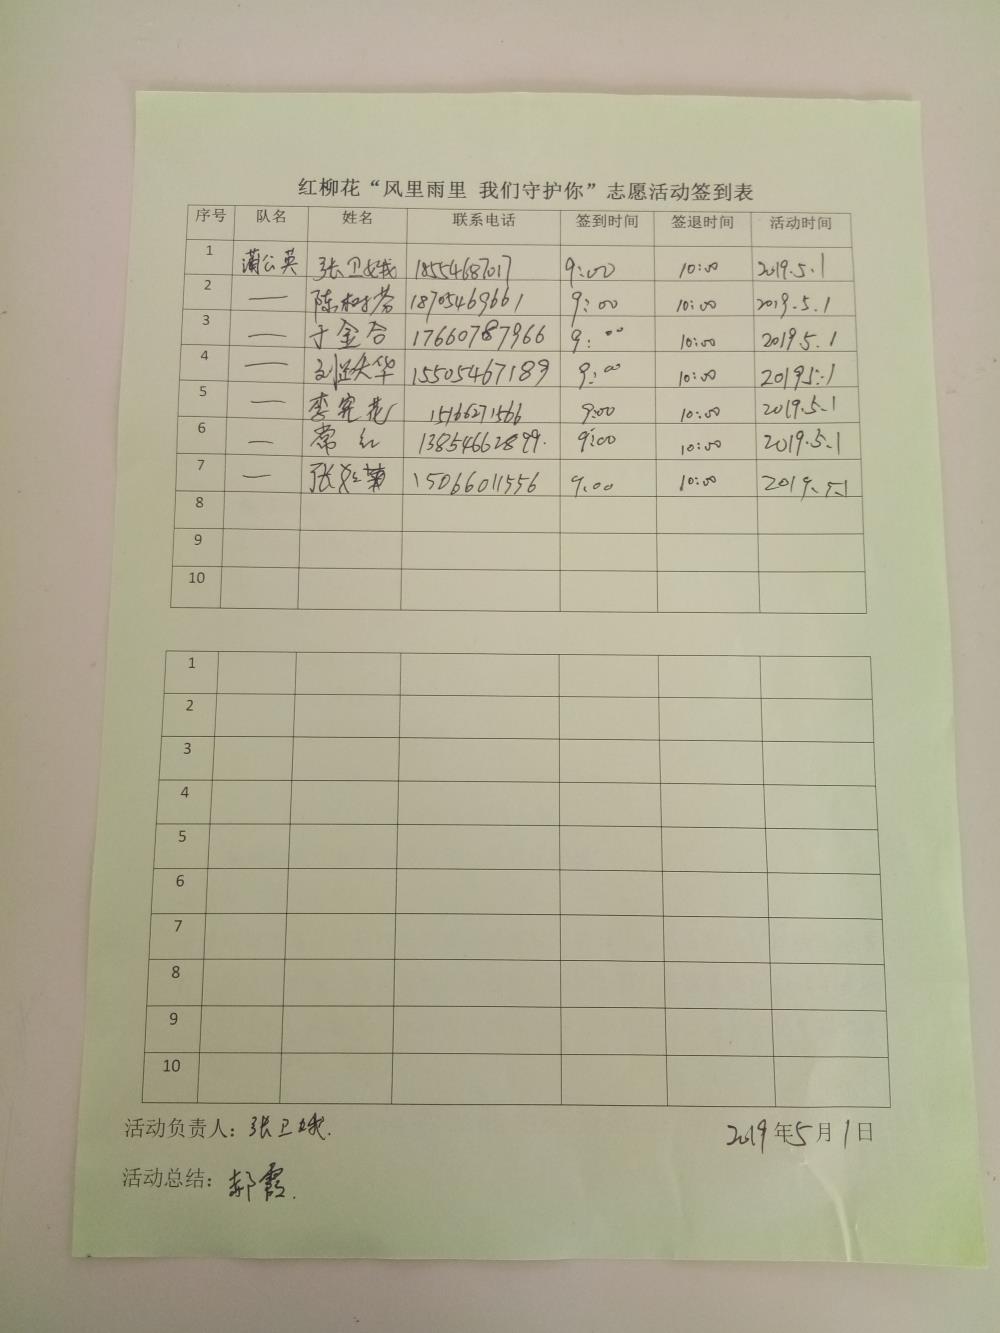 红柳花“风里雨里 我们守护你”志愿活动签到表
序号 队名 姓名 联系电话 签到时间 签退时间 活动时间
1 蒲公英 张卫娥 18554687017 9:00 10:00 2019.5.1
2 — 陈树芬 18705469661 9:00 10:00 2019.5.1
3 — 于金合 17660787966 9:00 10:00 2019.5.1
4 — 华 15505467189 9:00 10:00 2019.5.1
5 — 李宪花 15166271566 9:00 10:00 2019.5.1
6 — 常红 13854662899. 9:00 10:00 2019.5.1
7 — 张红菊 15066011556 9:00 10:00 2019.5.1
8
9
10
1
2
3
4
5
6
7
8
9
10
活动负责人：张卫娥. 2019年5月1日
活动总结：郝霞.